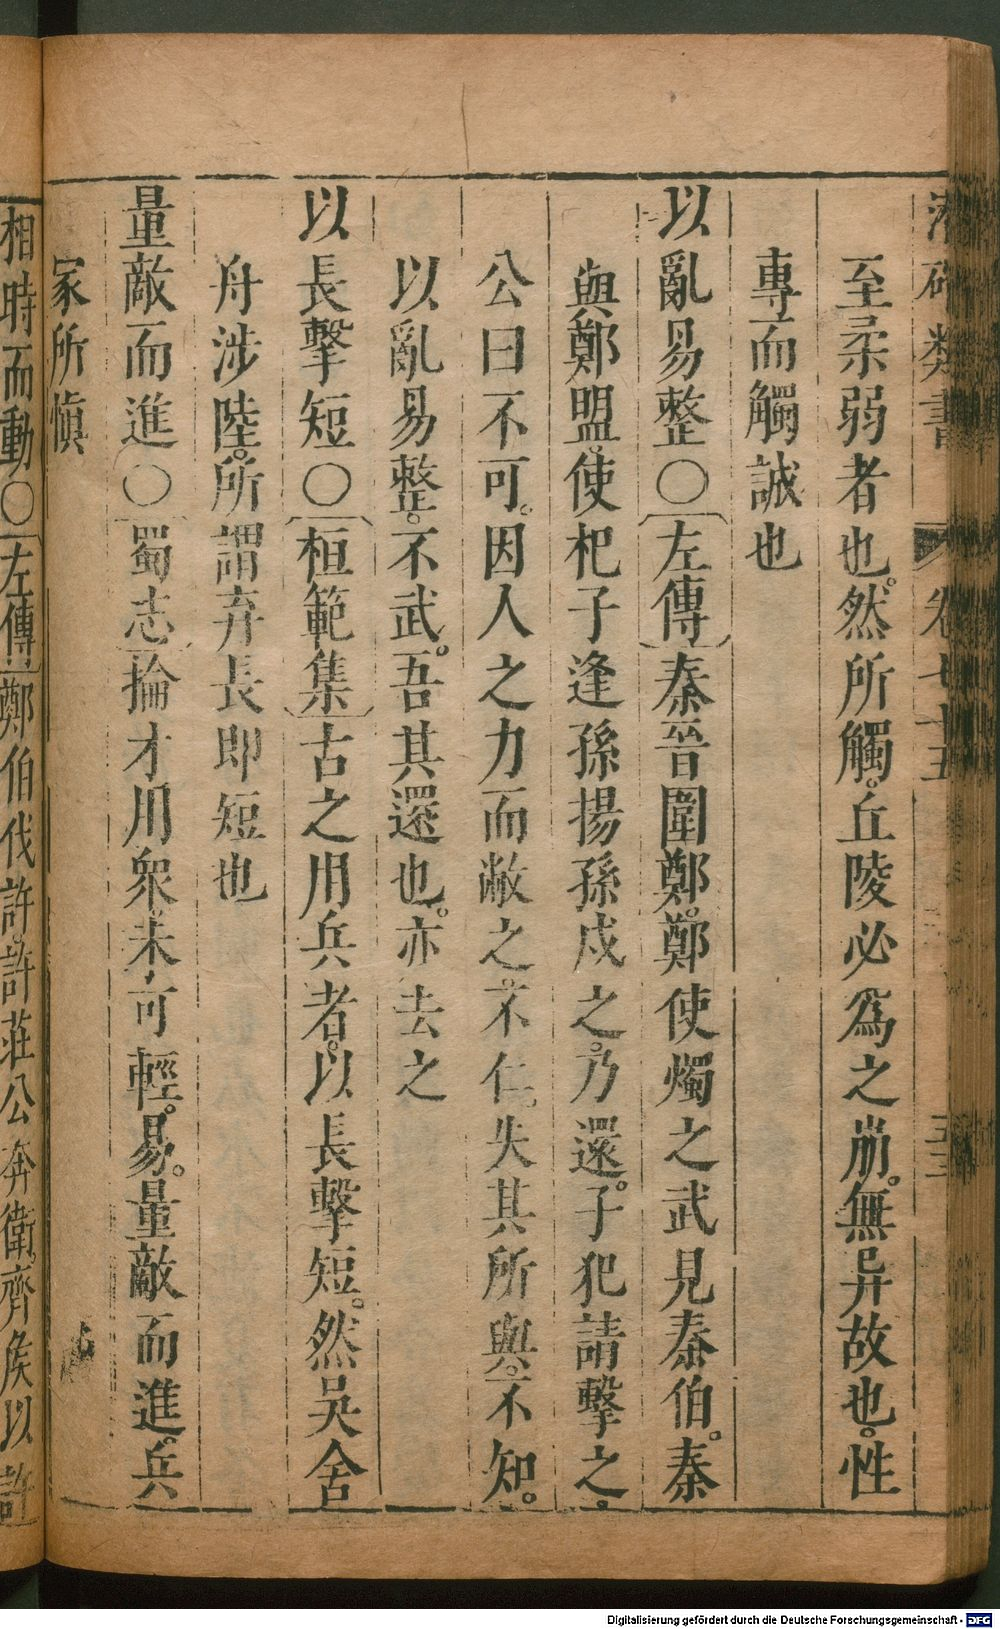 潛確類書 卷七十五 五三
至柔弱者也。然所觸。丘陵必爲之崩。無异故也。性
專而觸誠也
以亂易整○左傳秦晉圍鄭。鄭使燭之武見秦伯。秦
與鄭盟。使杞子逢孫揚孫戍之。乃還。子犯請擊之。
公曰不可。因人之力而敝之。不仁。失其所與。不知。
以亂易整。不武。吾其還也。亦去之
以長擊短○桓範集古之用兵者。以長擊短。然吳舍
舟涉陸。所謂弃長即短也
量敵而進○蜀志掄才用衆。未可輕。易。量敵而進。兵
家所愼
相時而動○左傳鄭伯伐許。許莊公奔衛。齊矦以許
Digitalisierung gefördert durch die Deutsche Forschungsgemeinschaft - DFG